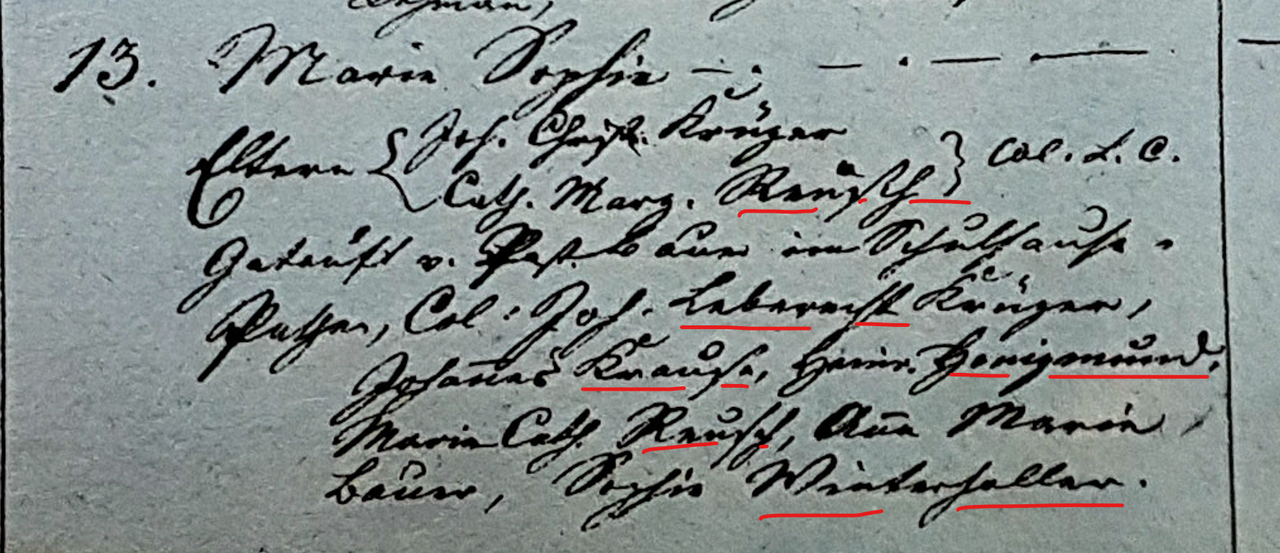 13. Marie Sophie — . — . — —
Eltern { Joh. Christ. Krüger
Cath. Marg. Reusch } Col. L. C.
Getauft v. Past. Bauer im Schulhause.
Pathen, Col: Joh. Leberecht Krüger,
Johannes Krause, Heinr. Honigmund,
Marie Cath. Reusch, Ana Marie
Bauer, Sophie Winterholler.